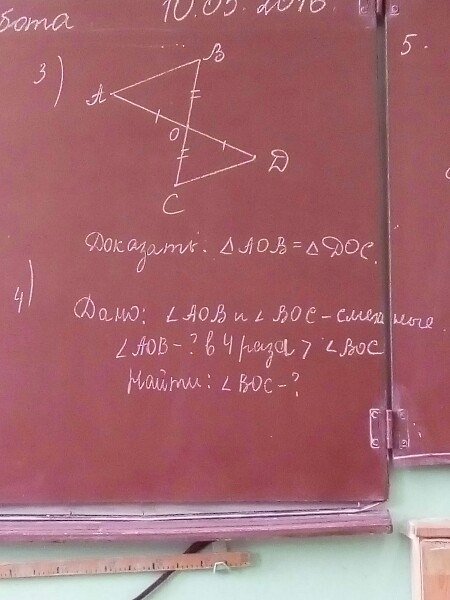 бота 10.03.2016.
3) B
A
O
D
C
5.
Доказать: △AOB = △DOC.
4)
Дано: ∠AOB и ∠BOC - смежные
∠AOB - ? в 4 раза > ∠BOC
Найти: ∠BOC - ?